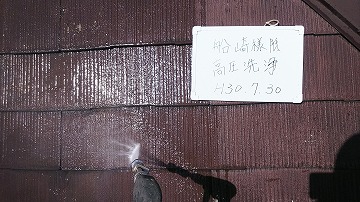 崎様邸
高圧洗浄
H30.7.30